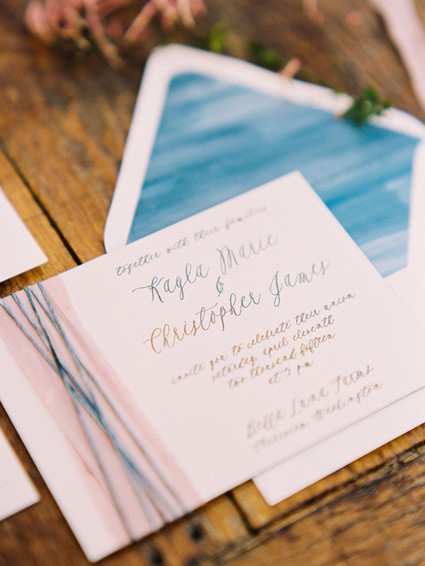 together with their families
Kayla Marie
&
Christopher James
invite you to celebrate their union
saturday, april eleventh
two thousand fifteen
at 3 pm
Bella Luna Farms
Washington